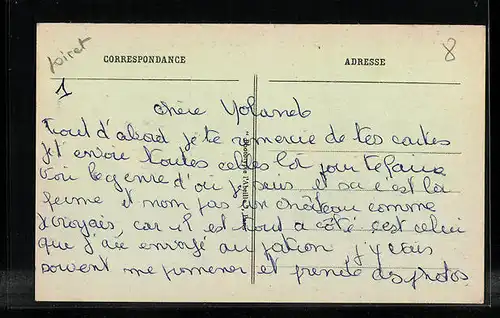 Loiret
8
CORRESPONDANCE
ADRESSE
1
chère Yolande
tout d'abord je te remercie de tes cartes
je t'envoie toutes celles là pour te faire
voir le genre d'où je suis et sa c'est la
ferme et nom pas un château comme
je croyais, car il est tout a côté c'est celui
que j'ai envoyé au patron, j'y vais
souvent me promener et prendre des photos